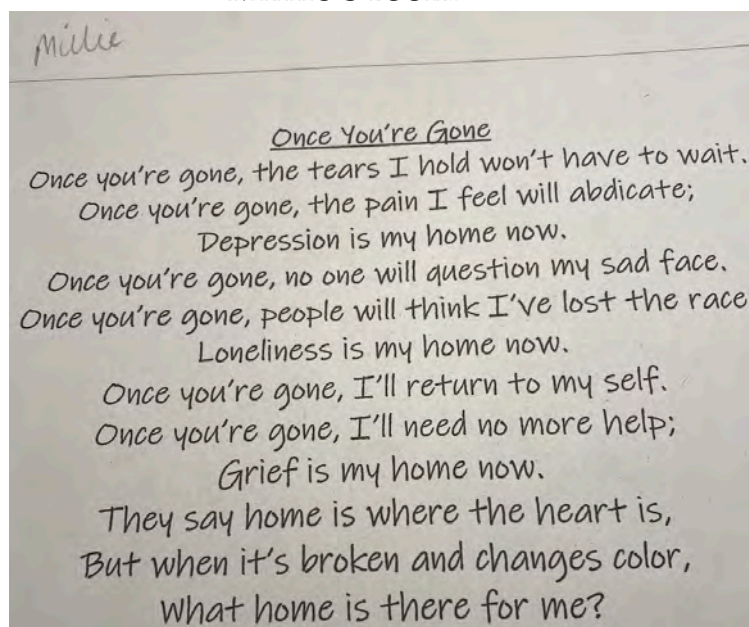 Millie
Once You're Gone
Once you're gone, the tears I hold won't have to wait.
Once you're gone, the pain I feel will abdicate;
Depression is my home now.
Once you're gone, no one will question my sad face.
Once you're gone, people will think I've lost the race
Loneliness is my home now.
Once you're gone, I'll return to my self.
Once you're gone, I'll need no more help;
Grief is my home now.
They say home is where the heart is,
But when it's broken and changes color,
What home is there for me?